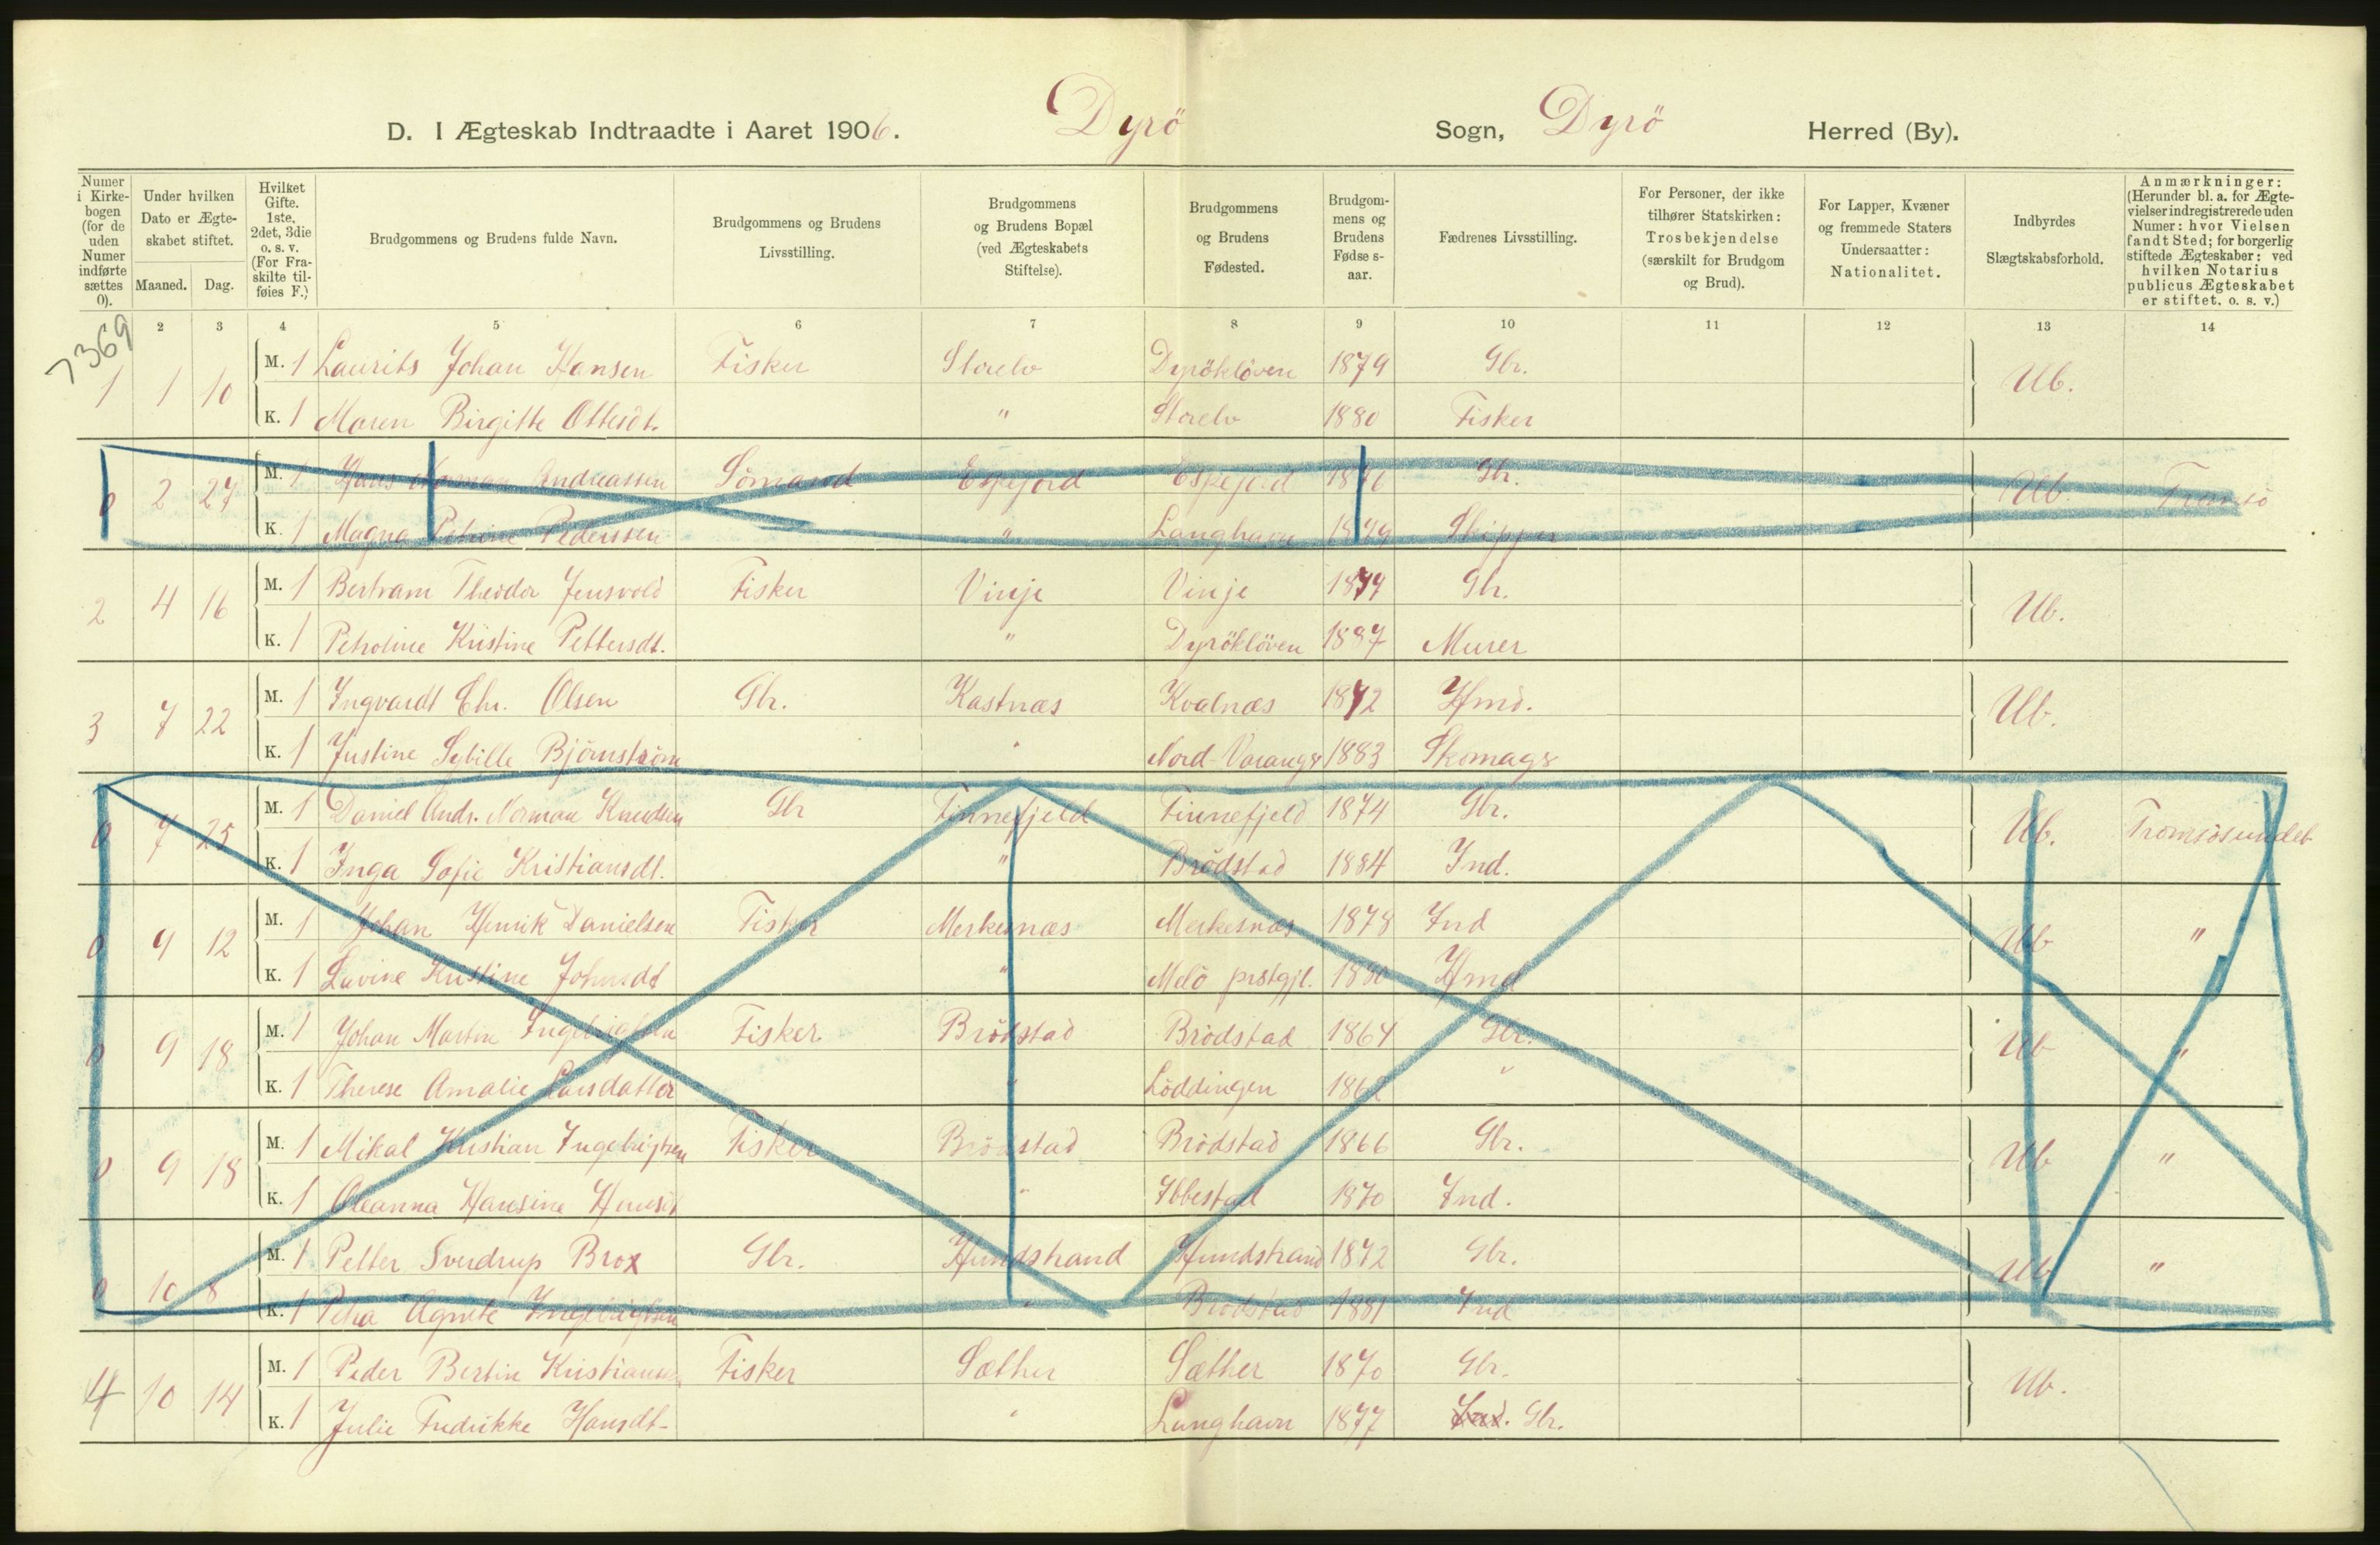 D. I Ægteskab Indtraadte i Aaret 1906. Dyrö Sogn, Dyrö Herred (By).
Numer i Kirkebogen (for de uden Numer indførte sættes 0).
Under hvilken Dato er Ægteskabet stiftet.
Maaned. Dag.
Hvilket Gifte. 1ste, 2det, 3die o. s. v. (For Fraskilte tilføies F.)
Brudgommens og Brudens fulde Navn.
Brudgommens og Brudens Livsstilling.
Brudgommens og Brudens Bopæl (ved Ægteskabets Stiftelse).
Brudgommens og Brudens Fødested.
Brudgommens og Brudens Fødses-aar.
Fædrenes Livsstilling.
For Personer, der ikke tilhører Statskirken: Trosbekjendelse (særskilt for Brudgom og Brud).
For Lapper, Kvæner og fremmede Staters Undersaatter: Nationalitet.
Indbyrdes Slægtskabsforhold.
Anmærkninger: (Herunder bl. a. for Ægtevielser indregistrerede uden Numer: hvor Vielsen fandt Sted; for borgerlig stiftede Ægteskaber: ved hvilken Notarius publicus Ægteskabet er stiftet, o. s. v.)
7369 2 3 4 5 6 7 8 9 10 11 12 13 14
1 1 10 M. 1 Laurits Johan Hansen Fisker Storelv Dyröklöven 1879 Gbr. Ub.
K. 1 Maren Birgitte Ottersdt. " Storelv 1880 Fisker
0 2 27 M. 1 Hans Norman Andreassen Sömand Espejord Espejord 1876 Gbr. Ub. Tromsö
K. 1 Magna Petrine Pederssen " Langhavn 1879 Skipper
2 4 16 M. 1 Bertram Theodor Jensvold Fisker Vinje Vinje 1874 Gbr. Ub.
K. 1 Petroline Kristine Pettersdt. " Dyröklöven 1887 Murer
3 7 22 M. 1 Ingvardt Chr. Olsen Gbr. Kastnæs Kvalnæs 1872 Hmd. Ub.
K. 1 Justine Sybille Björnström " Nord-Varangr 1883 Skomagr
0 7 25 M. 1 Daniel Andr. Norman Knudsen Gbr Finnefjeld Finnefjeld 1874 Gbr. Ub. Tromsösundet
K. 1 Inga Sofie Kristiansdt. " Brödstad 1884 Ind.
0 9 12 M. 1 Johan Henrik Danielsen Fisker Merkesnæs Merkesnæs 1878 Ind Ub "
K. 1 Lavine Kristine Johnsdt " Melö prstgjl. 1880 Hmd
0 9 18 M. 1 Johan Martin Ingebrigtsen Fisker Brödstad Brödstad 1864 Gbr. Ub "
K. 1 Therese Amalie Larsdatter " Löddingen 1862 "
0 9 18 M. 1 Mikal Kristian Ingebrigtsen Fisker Brödstad Brödstad 1866 Gbr. Ub "
K. 1 Oleanna Hansine Hansdt " Ibbestad 1870 Ind.
0 10 8 M. 1 Petter Sverdrup Brox Gbr. Hundstrand Hundstrand 1872 Gbr. Ub "
K. 1 Petra Agnete Ingebrigtsen " Brödstad 1881 Ind
4 10 14 M. 1 Peder Bertin Kristiansen Fisker Sæther Sæther 1870 Gbr. Ub.
K. 1 Julie Fredrikke Hansdt. " Langhavn 1877 Ind. Gbr.